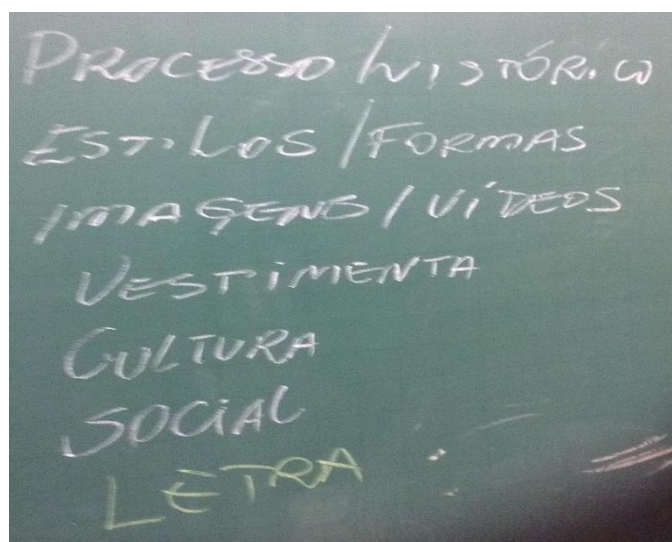 PROCESSO HISTÓRICO
ESTILOS / FORMAS
IMAGENS / VÍDEOS
VESTIMENTA
CULTURA
SOCIAL
LETRA